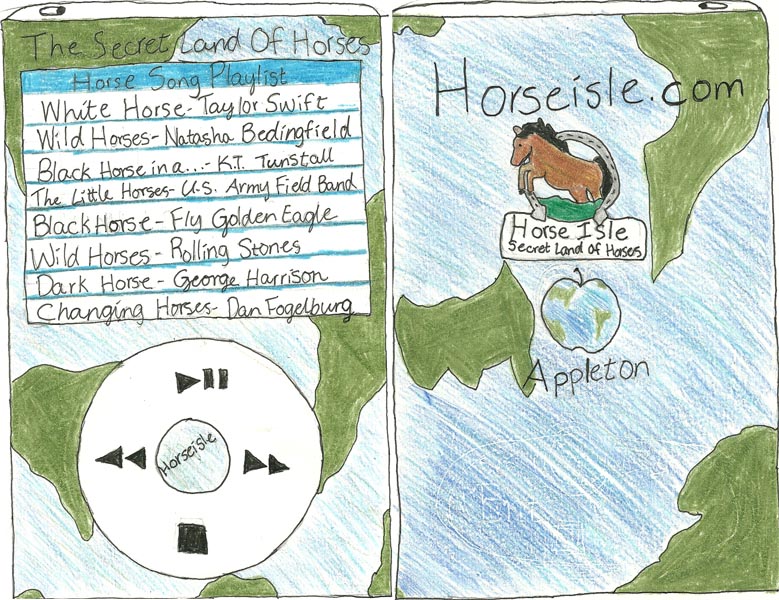 The Secret Land Of Horses
Horse Song Playlist
White Horse - Taylor Swift
Wild Horses - Natasha Bedingfield
Black Horse in a... - K.T. Tunstall
The Little Horses - U.S. Army Field Band
Black Horse - Fly Golden Eagle
Wild Horses - Rolling Stones
Dark Horse - George Harrison
Changing Horses - Dan Fogelburg
Horseisle
Horseisle.com
Horse Isle
Secret Land of Horses
Appleton